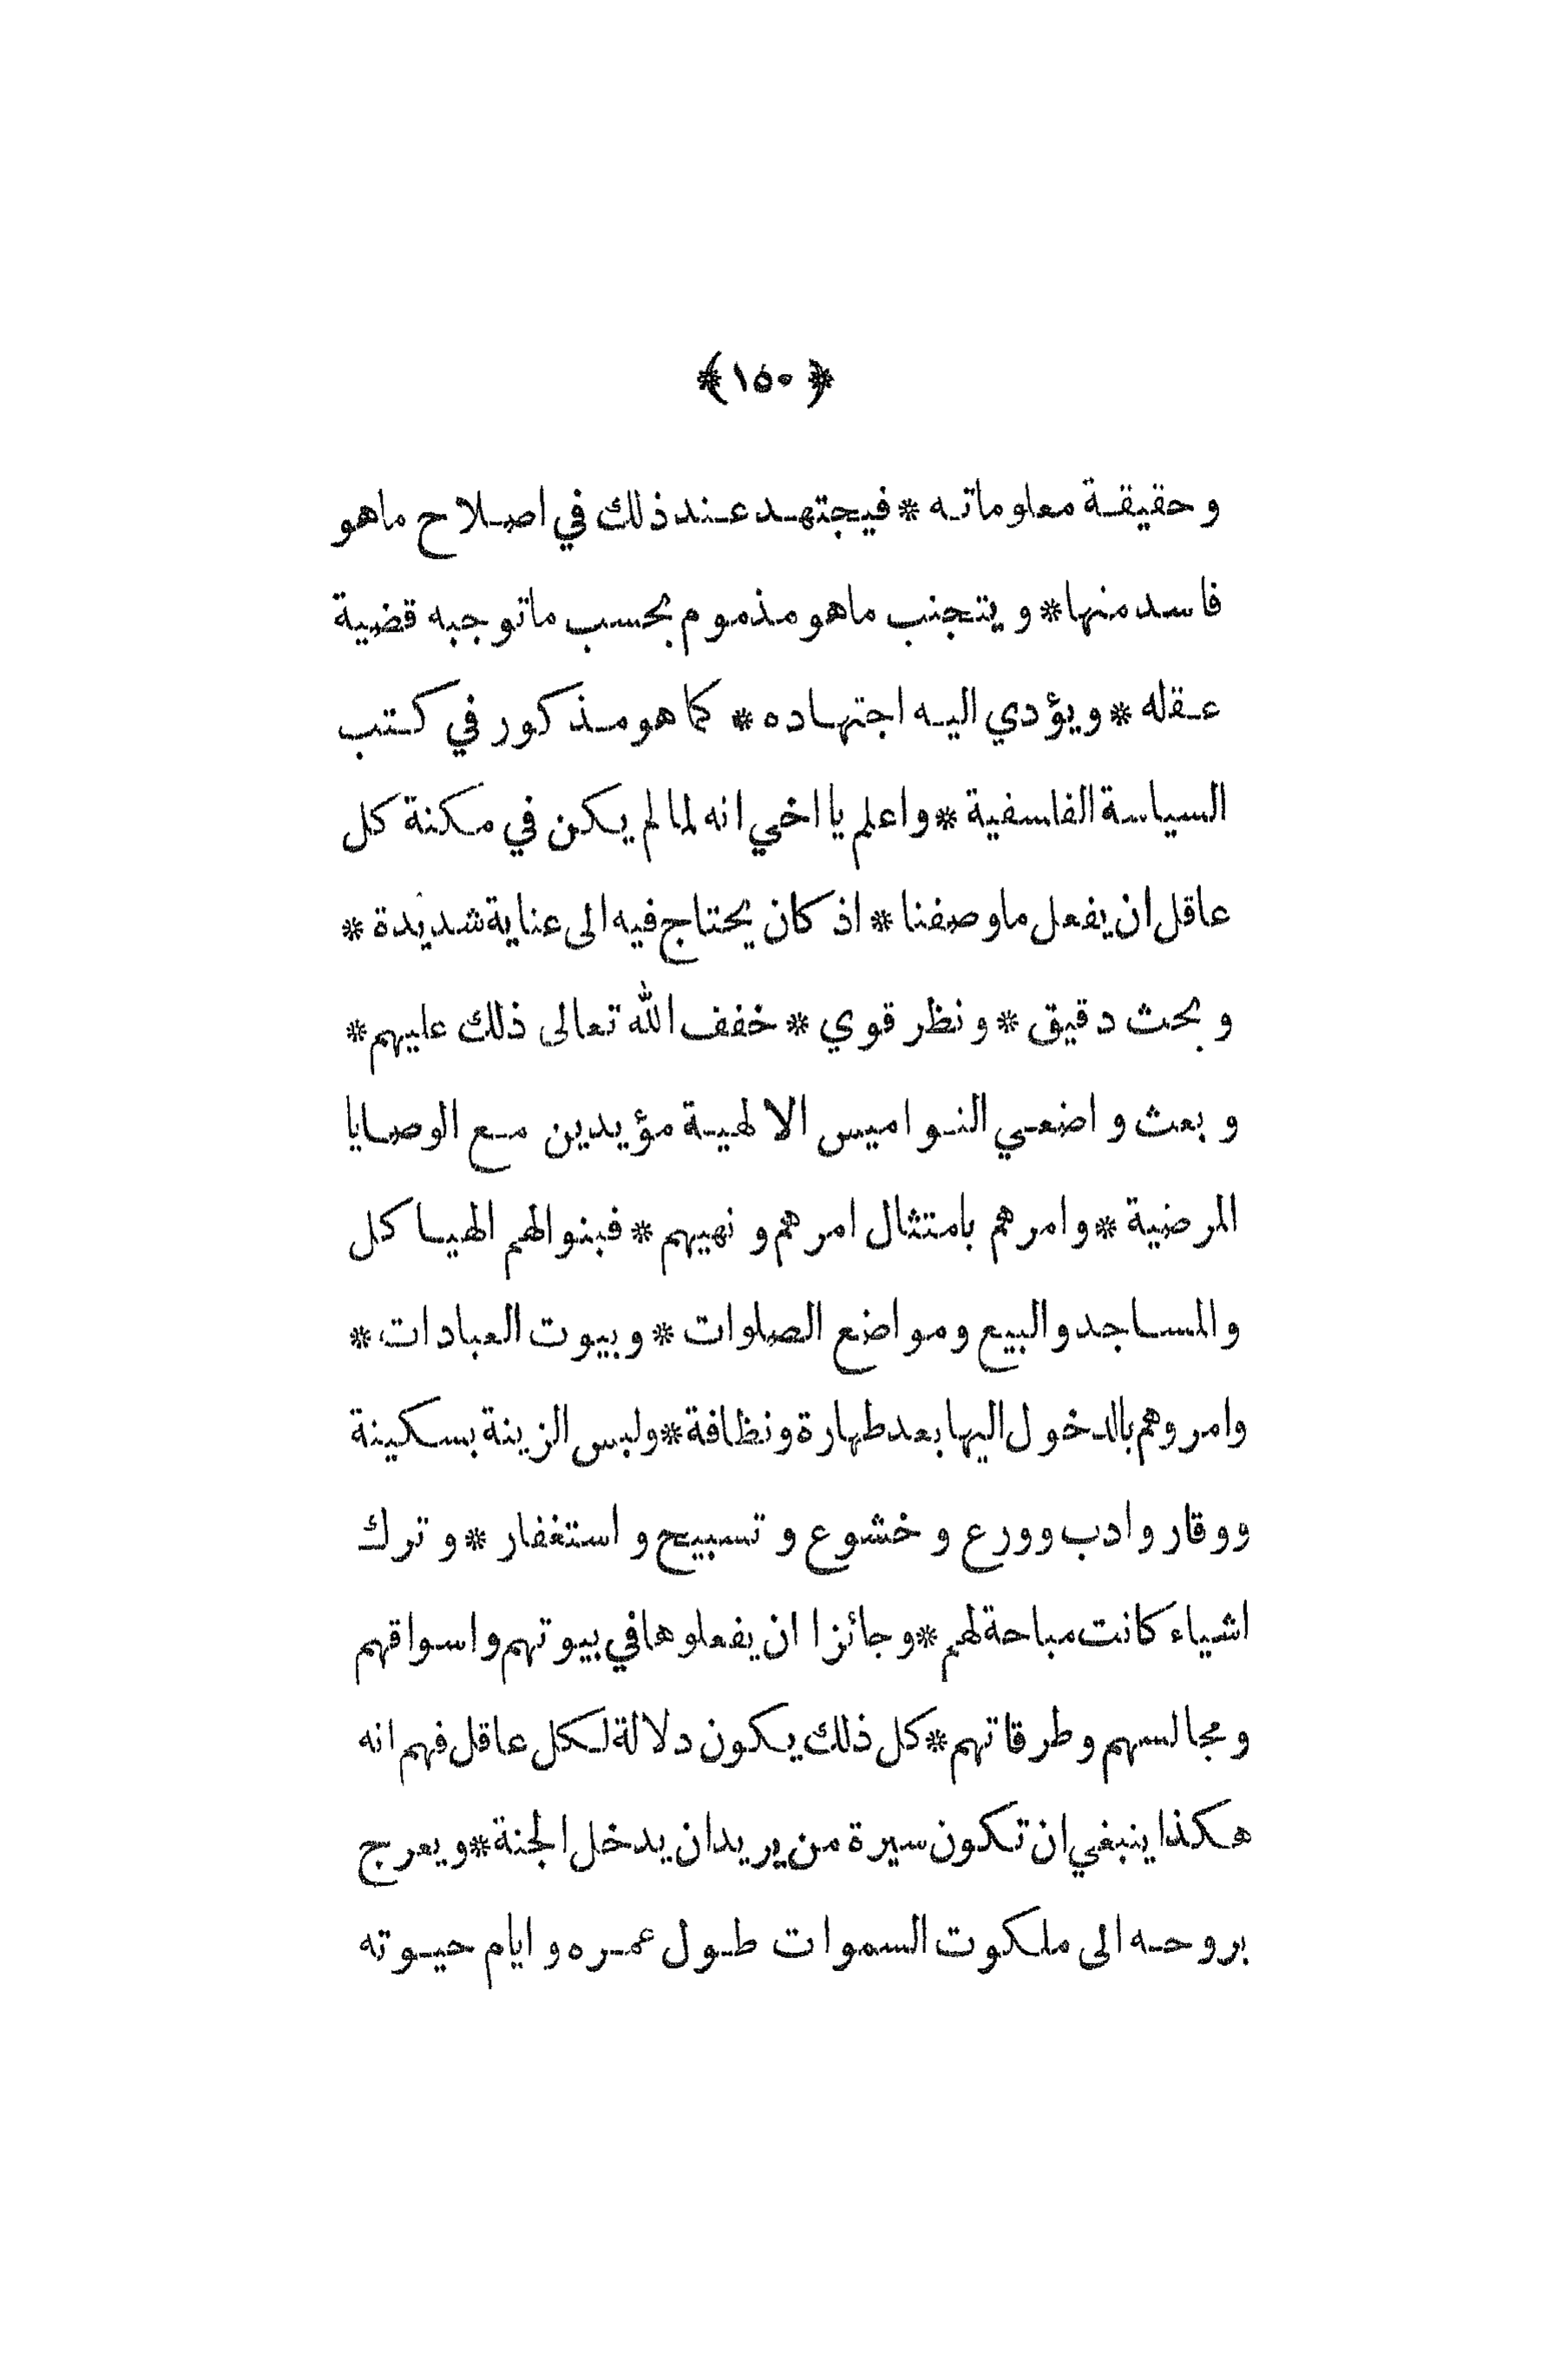 ﴿ ١٥٠ ﴾
وحقيقة معلوماته * فيجتهد عند ذلك في اصلاح ماهو
فاسد منها * ويتجنب ماهو مذموم بحسب ماتوجبه قضية
عقله * ويؤدي اليه اجتهاده * كما هو مذكور في كتب
السياسة الفلسفية * واعلم يا اخي انه لما لم يكن في مكنة كل
عاقل ان يفعل ماوصفنا * اذ كان يحتاج فيه الى عناية شديدة *
وبحث دقيق * ونظر قوي * خفف الله تعالى ذلك عليهم *
وبعث واضعي النواميس الالهية مؤيدين مع الوصايا
المرضية * وامرهم بامتثال امرهم ونهيهم * فبنوا لهم الهياكل
والمساجد والبيع ومواضع الصلوات * وبيوت العبادات *
وامروهم بالدخول اليها بعد طهارة ونظافة * ولبس الزينة بسكينة
ووقار وادب وورع وخشوع وتسبيح واستغفار * وترك
اشياء كانت مباحة لهم * وجائزا ان يفعلوها في بيوتهم واسواقهم
ومجالسهم وطرقاتهم * كل ذلك يكون دلالة لكل عاقل فهم انه
هكذا ينبغي ان تكون سيرة من يريد ان يدخل الجنة * ويعرج
بروحه الى ملكوت السموات طول عمره وايام حيوته